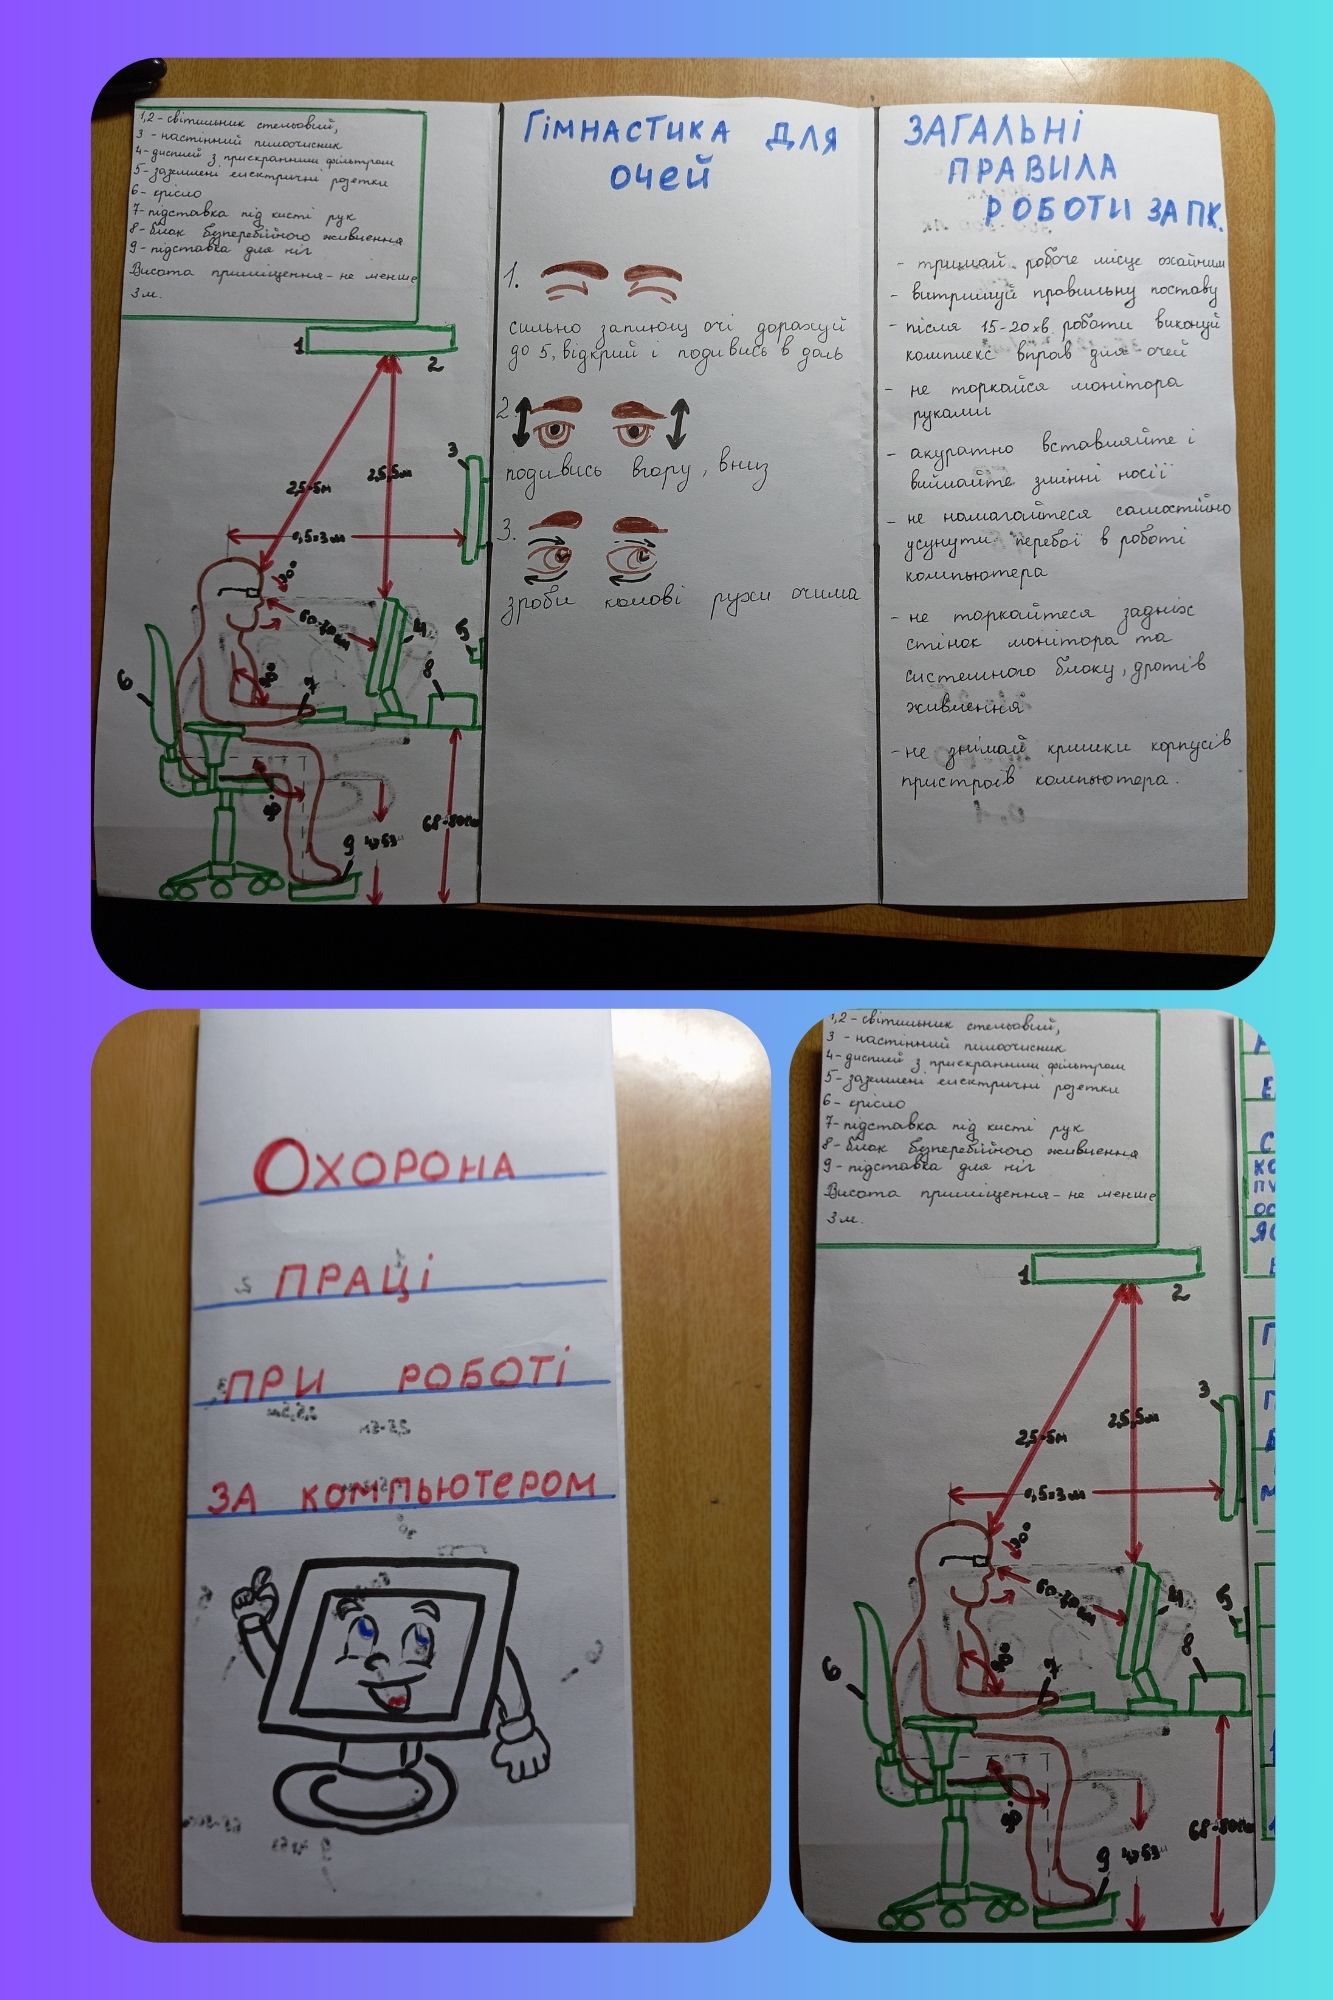 1,2 - світильник стельовий,
3 - настінний пилоочисник
4 - дисплей з прискранним фільтром
5 - заземлені електричні розетки
6 - крісло
7 - підставка під кисті рук
8 - блок безперебійного живлення
9 - підставка для ніг
Висота приміщення - не менше
3 м.
1
2
3
2,5-5м
2,5,5м
0,5=3м
30°
4
5
6
7
8
9
68-80см
ГІМНАСТИКА ДЛЯ
ОЧЕЙ
1.
сильно заплющ очі дорахуй
до 5, відкрий і подивись в даль
2.
подивись вгору, вниз
3.
зроби колові рухи очима
ЗАГАЛЬНІ
ПРАВИЛА
РОБОТИ ЗА ПК.
- тримай робоче місце охайним
- витримуй правильну поставу
- після 15-20хв. роботи виконуй
комплекс вправ для очей
- не торкайся монітора
руками
- акуратно вставляйте і
виймайте змінні носії
- не намагайтеся самостійно
усунути перебої в роботі
компьютера
- не торкайтеся задніх
стінок монітора та
системного блоку, дротів
живлення
- не знімай кришки корпусів
пристроїв компьютера.
ОХОРОНА
ПРАЦІ
ПРИ РОБОТІ
ЗА КОМПЬЮТЕРОМ
1,2 - світильник стельовий,
3 - настінний пилоочисник
4 - дисплей з прискранним фільтром
5 - заземлені електричні розетки
6 - крісло
7 - підставка під кисті рук
8 - блок безперебійного живлення
9 - підставка для ніг
Висота приміщення - не менше
3 м.
1
2
3
2,5-5м
2,5,5м
0,5=3м
30°
4
5
6
7
8
9
68-80см